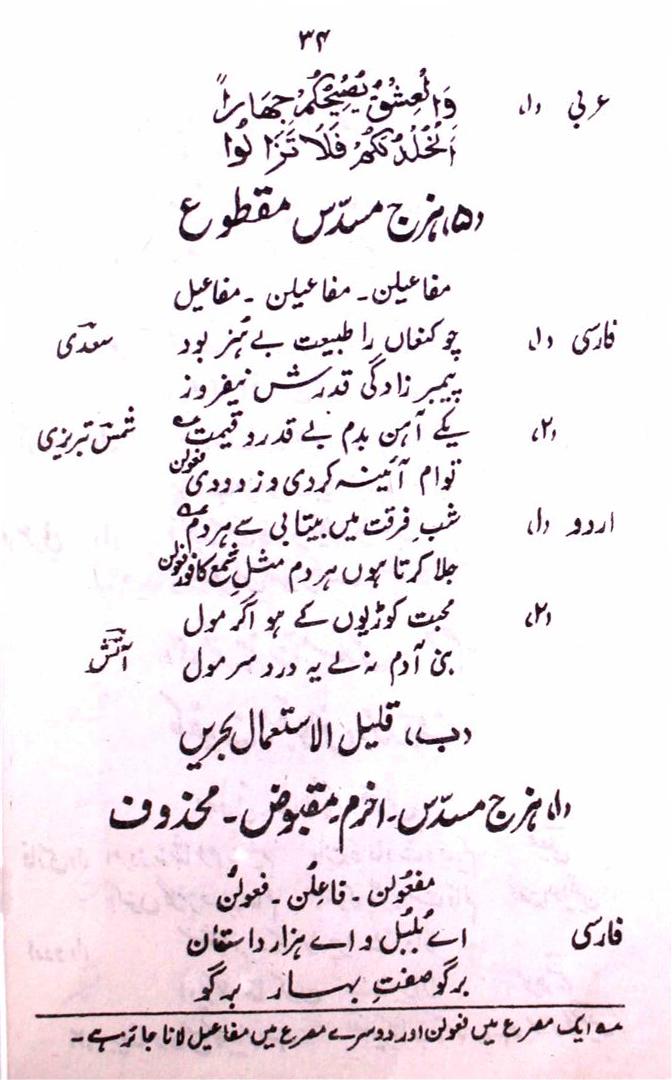 ۳۴
عربی (۱) وَالْعِشْقُ یُصِیْحُکُمْ جِھَارًا
اَلْخُلْدُ لَکُمْ فَلَا تَزَالُوْا
(۵) ہزج مسدّس مقطوع
مفاعیلن ۔ مفاعیلن ۔ مفاعیل
فارسی (۱) چو کنعاں را طبیعت بے ہنر بود سعدی
پیمبر زادگی قدرش نیفروز
(۲) یکے آہن بدم بے قدر و قیمت شمس تبریزی
توام آئینہ کردی و ز دودی فعولن
اردو (۱) شبِ فرقت میں بیتابی سے ہر دم
جلا کرتا ہوں ہر دم مثلِ شمع کافور فعولن
(۲) محبت کوڑیوں کے ہو اگر مول
بنی آدم نہ لے یہ درد سر مول آتش
(ب) قلیل الاستعمال بحریں
(۱) ہزج مسدّس ۔ اخرم ۔ مقبوض ۔ محذوف
مفعولن ۔ فاعلن ۔ فعولن
فارسی اے بُلبُل و اے ہزار داستان
برگو صفتِ بہار برگو
ے ایک مصرع میں فعولن اور دوسرے مصرع میں مفاعیل لانا جائز ہے ۔